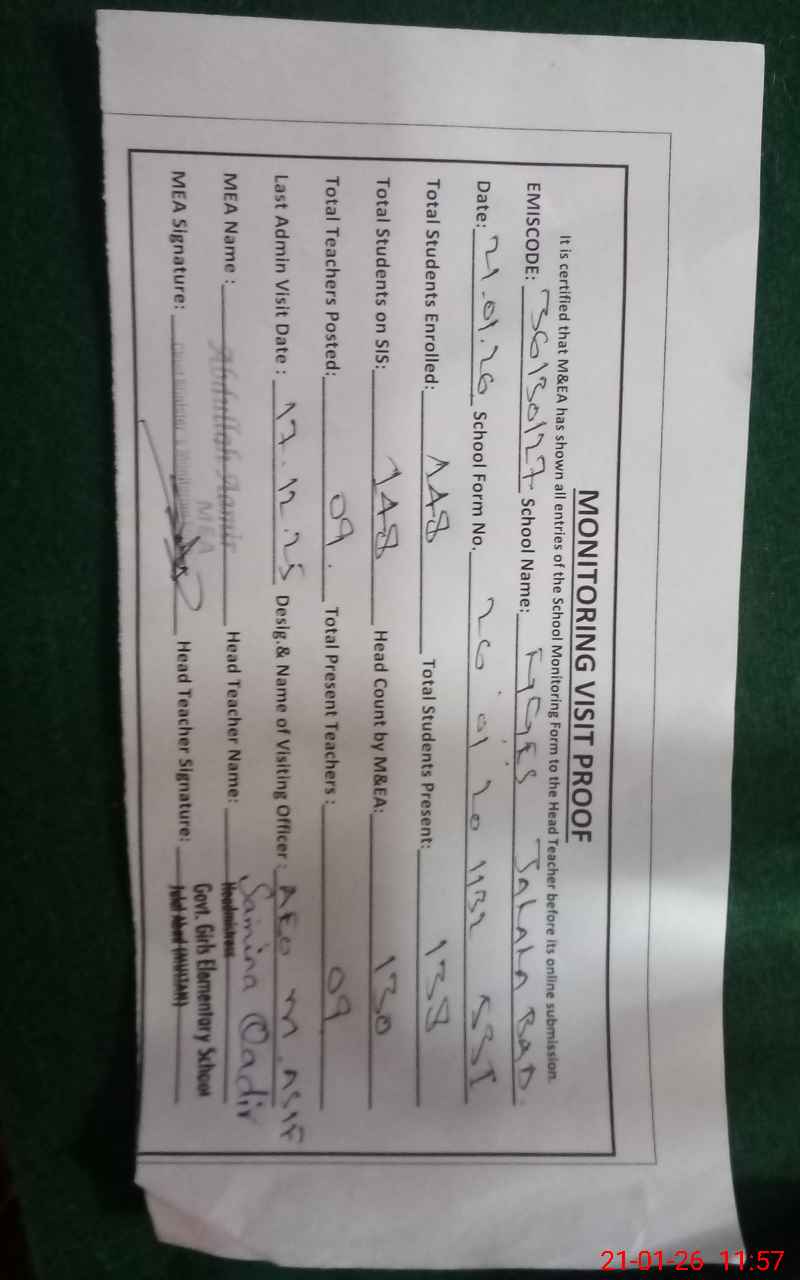 MONITORING VISIT PROOF
It is certified that M&EA has shown all entries of the School Monitoring Form to the Head Teacher before its online submission.
EMISCODE: 36130127 School Name: GGES JALALA BAD.
Date: 21.01.26 School Form No. 26 01 20 1132 531
Total Students Enrolled: 148 Total Students Present: 138
Total Students on SIS: 148 Head Count by M&EA: 130
Total Teachers Posted: 09. Total Present Teachers: 09
Last Admin Visit Date: 17.12.25 Desig.& Name of Visiting Officer: AEO M. ASIF
MEA Name : Abdullah Aamir Head Teacher Name: Samina Qadir
MEA
MEA Signature: Head Teacher Signature:
Headmistress
Govt. Girls Elementary School
Jalal Abad (MULTAN)
21-01-26 11:57